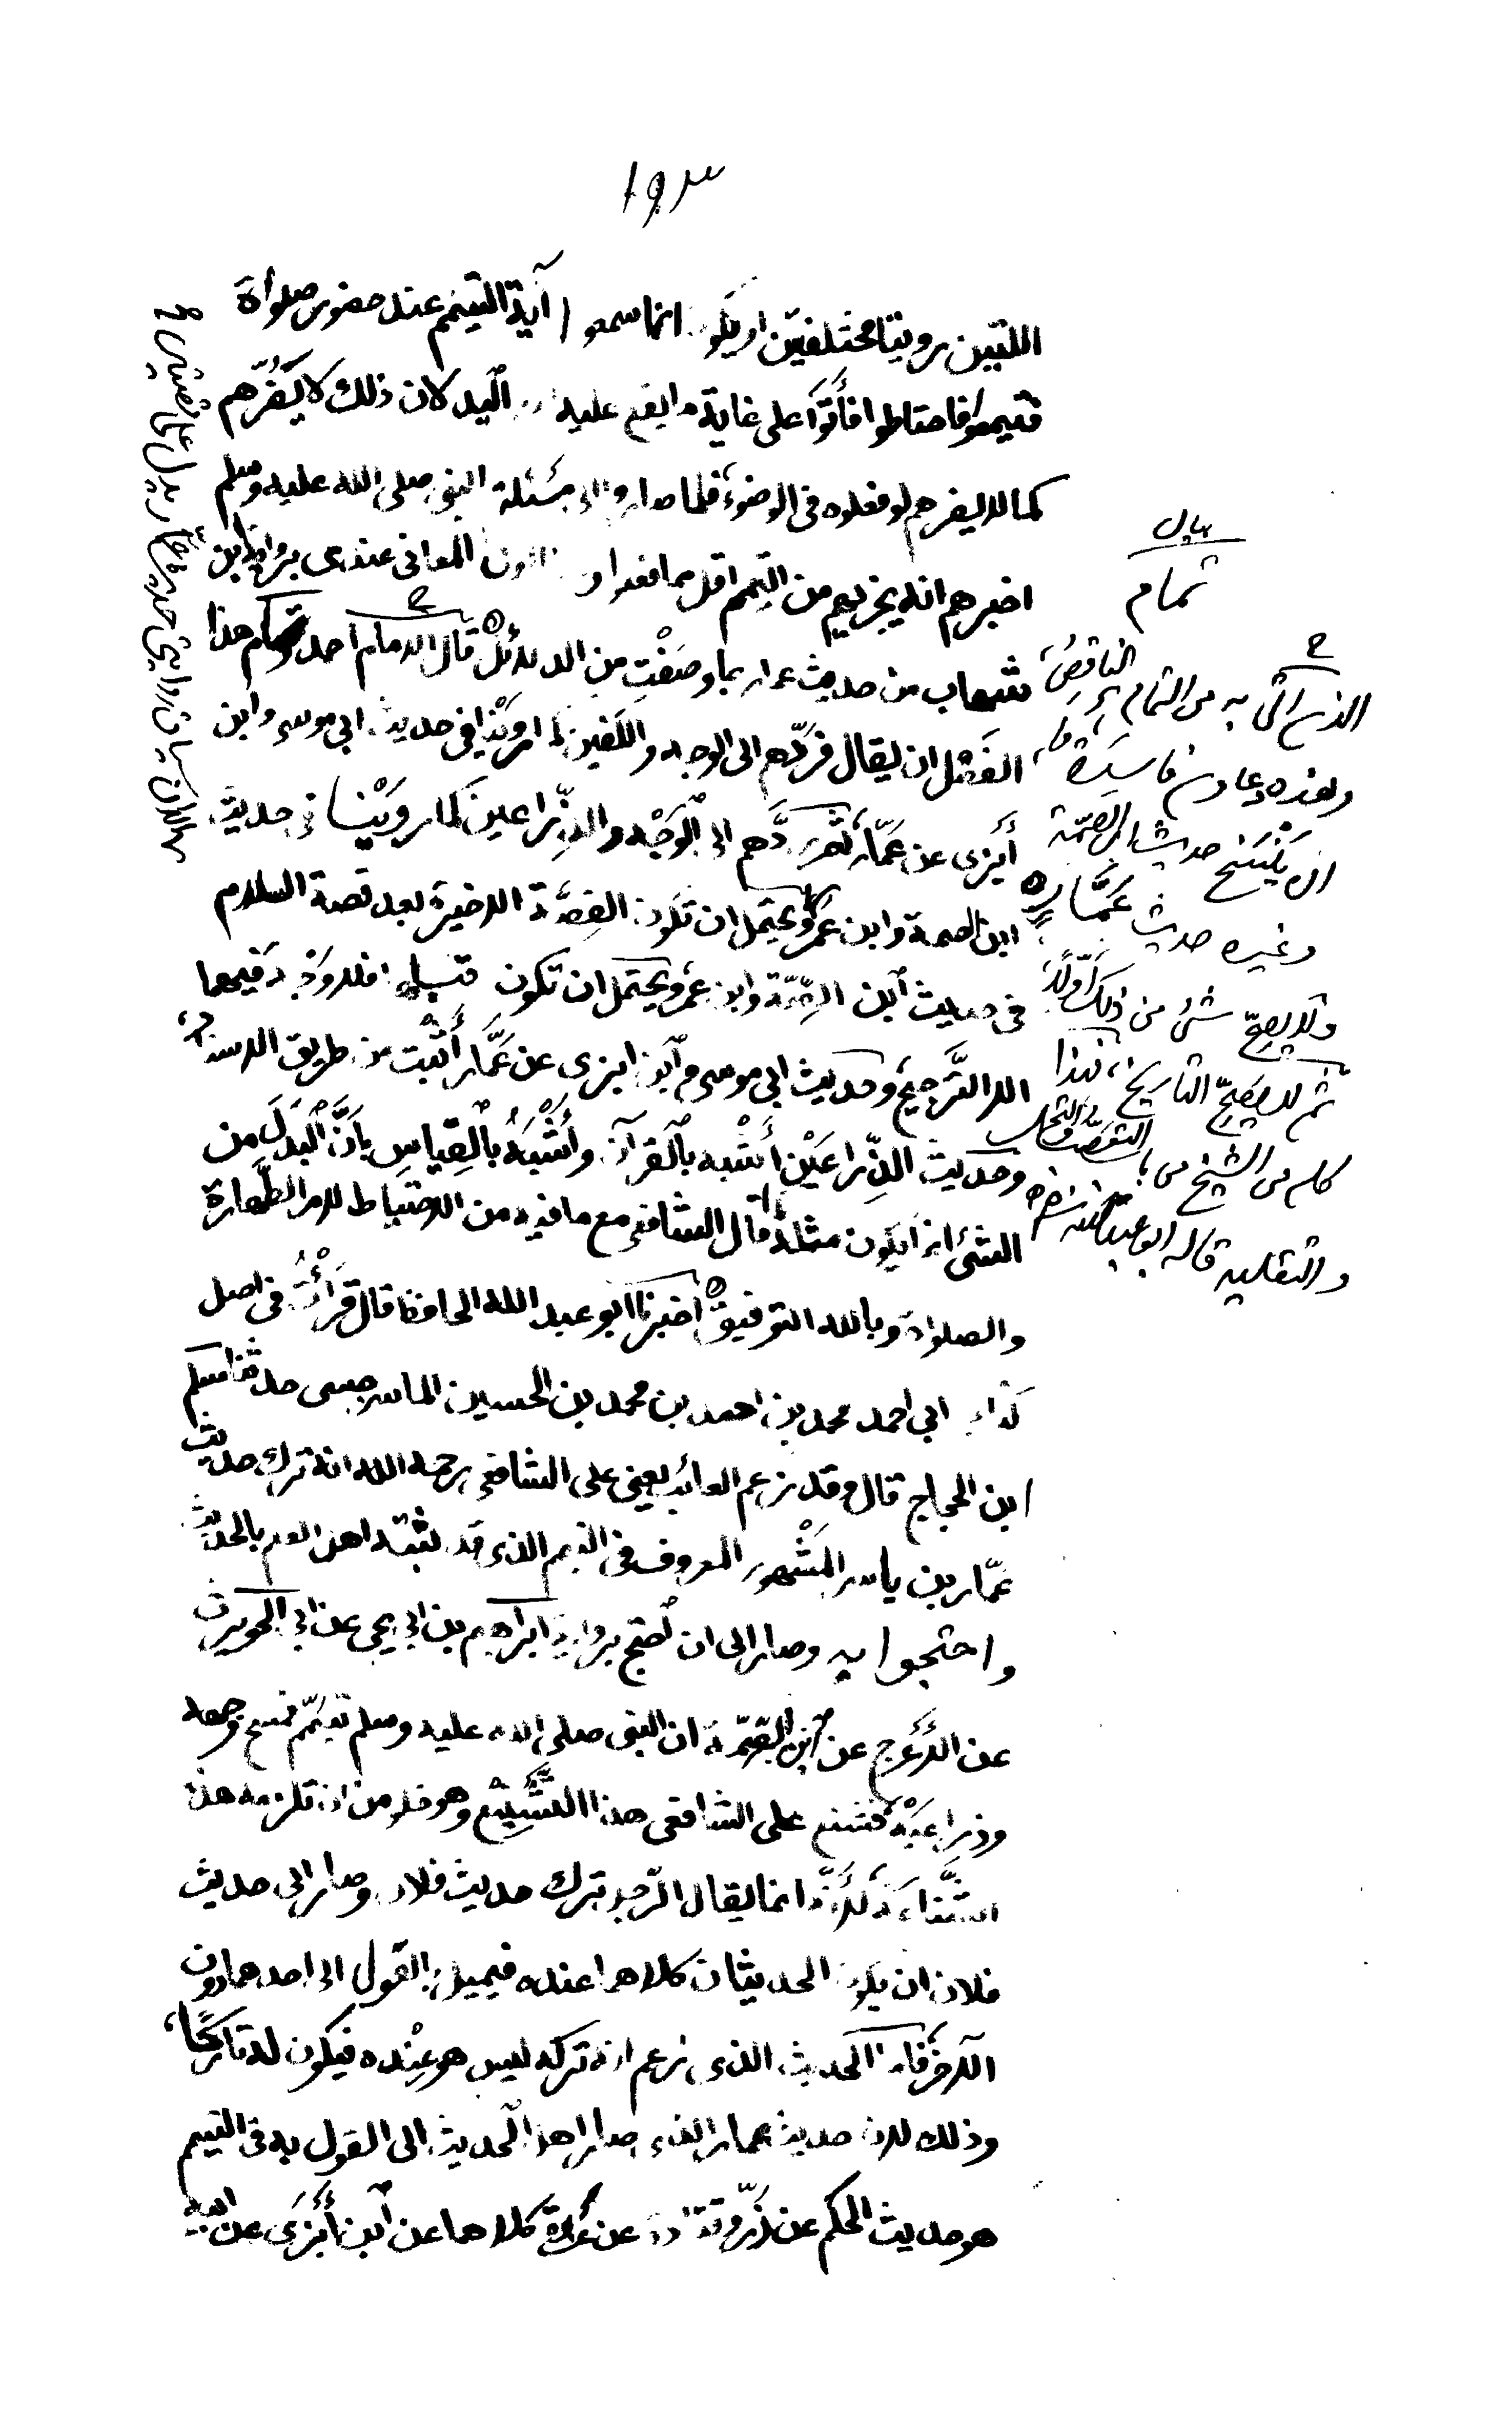 ١٩٣
اللتين رويتا مختلفتين او يكون انما سمعوا آية التيمم عند حضور صلواة
فتيمموا فاحتاطوا فأتوا على غاية ما يقع عليه اسم اليد لان ذلك لا يضرهم
كما لا يضرهم لو فعلوه في الوضوء فلما صاروا الى مسئلة النبي صلى الله عليه وسلم
اخبرهم انه يجزيهم من التيمم اقل مما فعلوا وهذا اولى المعاني عندي برواية ابن
شهاب من حديث عمار بما وصفت من الدلائل قال الامام احمد وتمام هذا
الفصل ان يقال فردهم الى الوجه والكفين كما روينا في حديث ابي موسى وابن
أبزى عن عمار ثم ردهم الى الوجه والذراعين كما روينا في حديث
ابن الصمة وابن عمر ويحتمل ان تكون القصة الاخيرة بعد قصة السلام
في حديث ابن الصمة وابن عمر ويحتمل ان تكون قبله فلا وجه فيهما
الا الترجيح وحديث ابي موسى وابن ابزى عن عمار أثبت من طريق الاسناد
وحديث الذراعين أشبه بالقرآن وأشبه بالقياس بأن البدل من
الشئ انما يكون مثله قال الشافعي مع ما فيه من الاحتياط لامر الطهارة
والصلواة وبالله التوفيق اخبرنا ابو عبد الله الحافظ قال قرأت في اصل
كتاب ابي احمد محمد بن احمد بن محمد بن الحسين الماسرجسي حدثنا مسلم
ابن الحجاج قال وقد زعم العائب يعني على الشافعي رحمه الله انه ترك حديث
عمار بن ياسر المشهور المعروف في التيمم الذي قد يثبته اهل العلم بالحديث
واحتجوا به وصار الى ان احتج برواية ابراهيم بن ابي يحيى عن ابي الحويرث
عن الأعرج عن ابن الصمة ان النبي صلى الله عليه وسلم تيمم فمسح وجهه
وذراعيه فشنع على الشافعي هذا التشنيع وهو خلو من ان تلزمه هذه
الشناعة لأنه انما يقال الرجل ترك حديث فلان وصار الى حديث
فلان ان يكون الحديثان كلاهما عنده فيميل بالقول الى احدهما دون
الآخر فاما الحديث الذي زعم انه تركه ليس هو عنده فيكون له تاركا
وذلك لان حديث عمار الذي صار اهل الحديث الى القول به في التيمم
هو حديث الحكم عن ذر وقتادة عن عزرة كلاهما عن ابن أبزى عن ابيه
تمام
الذي اتى به من التمام الناقص
وهذه دعاوى فاسدة
ان ينسخ حديث ابن الصمة
وغيره حديث عمار
ولا يصح شئ من ذلك أولا
ثم لا يصح التاريخ، فهذا
كله من الشيخ من التعصب والتحمل
والتقليد قاله ابو عبد الله